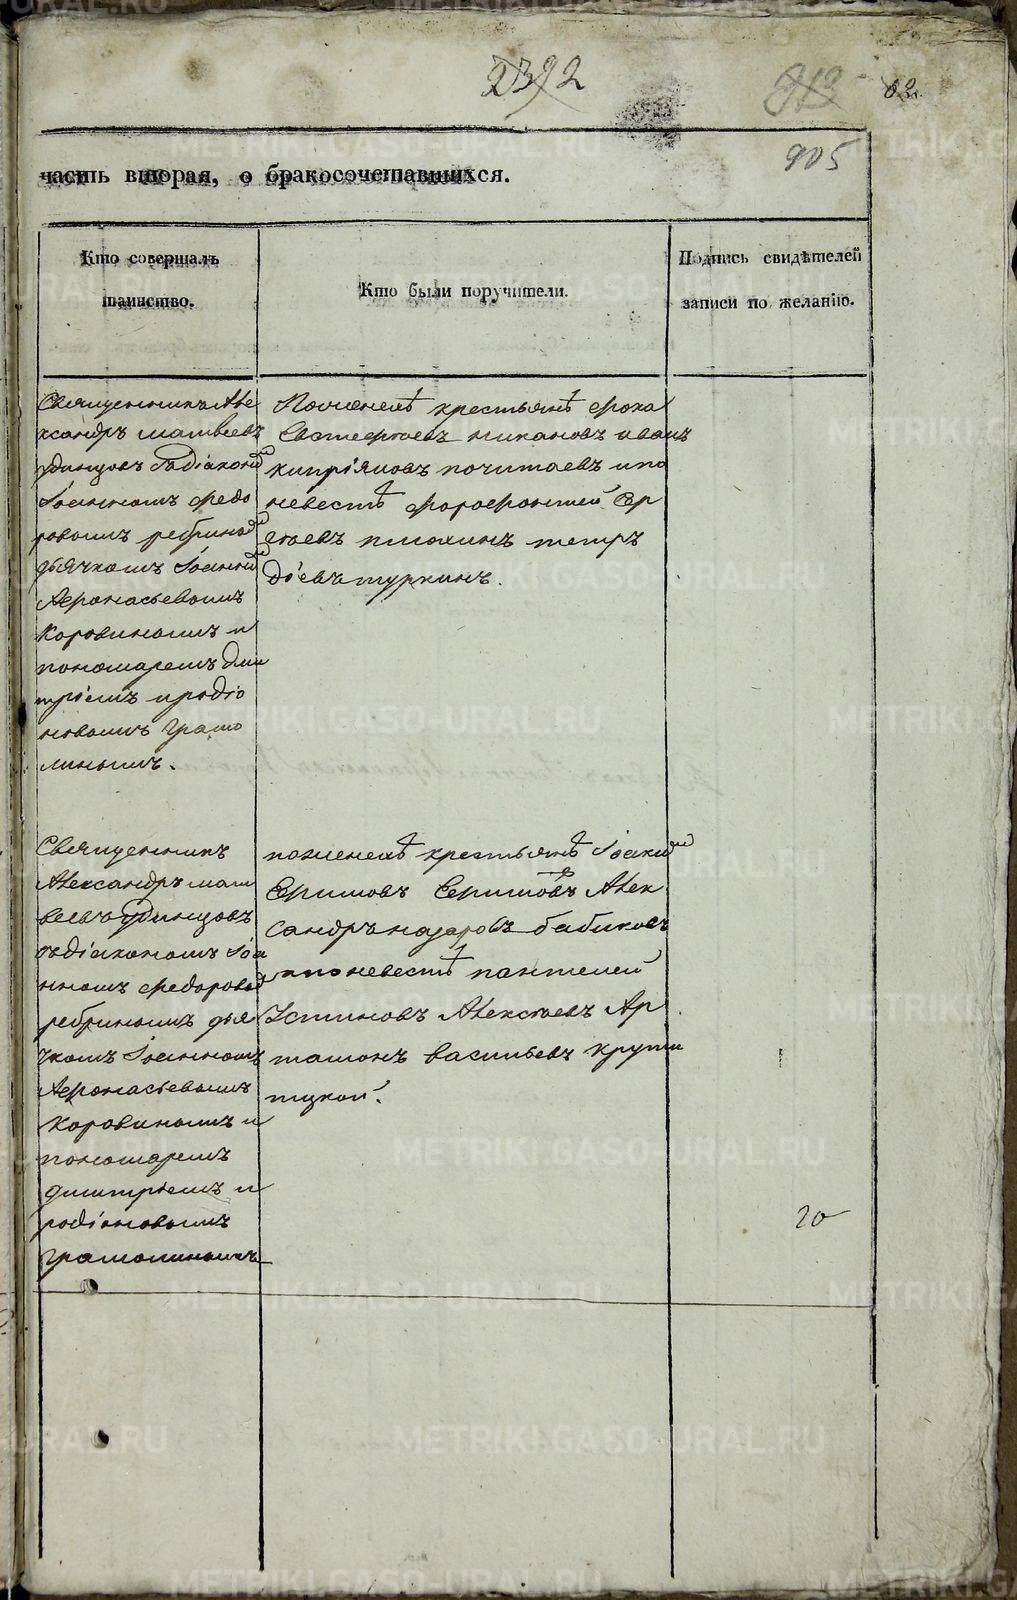 2392
313
63.
905
часть вторая, о бракосочетавшихся.
Кто совершалъ
таинство.
Кто были поручители.
Подпись свидѣтелей
записи по желанію.
Священникъ Але
ксандръ Матвеевъ
Удинцовъ съ діакономъ
Іоанномъ Федо
ровомъ Ребриномъ
дьячкомъ Іоанномъ
Афонасьевымъ
Коровинымъ и
пономаремъ Дми
тріемъ иродіо
новымъ Грамо
линымъ.
По женихѣ крестьянѣ Фока
Евстефеевъ никановъ иванъ
кипріяновъ почитаевъ и по
невестѣ ферофонтей Сер
геевъ плюхинъ петръ
діевъ туркинъ.
Священникъ
Александръ мат
веевъ Удинцовъ
съ діакономъ Іоа
нномъ Федоровомъ
ребринымъ дья
чкомъ Іоанномъ
Афонасьевымъ
Коровинымъ и
пономаремъ
дмитріемъ и
родіоновымъ
Грамолинымъ
по женихѣ крестьянѣ Іоакимъ
Ефимовъ Ефимовъ Алек
сандръ назаровъ бабиковъ
и по невестѣ пантелей
Устиновъ Алексеевъ Ар
тамонъ васильевъ крути
пцкой.
20
METRIKI.GASO-URAL.RU